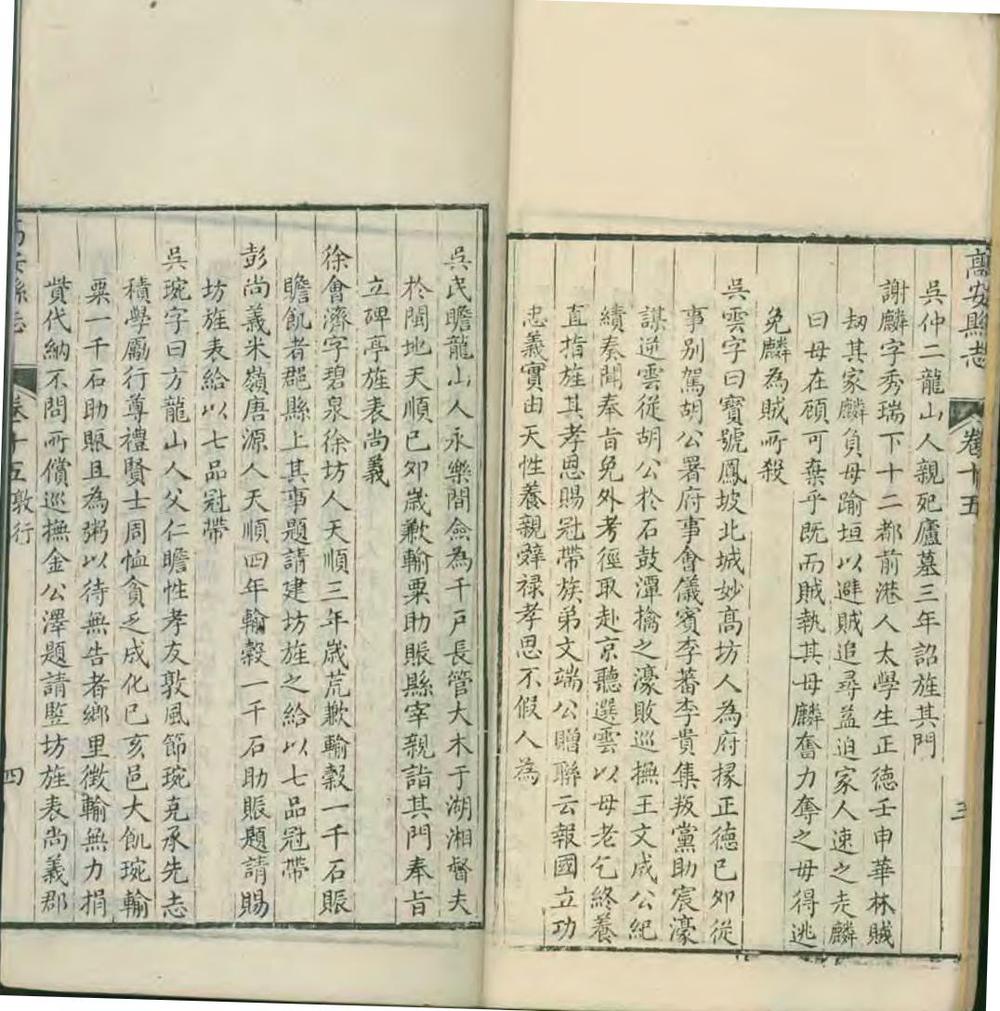 高安縣志
卷十五
三
吳仲二龍山人親死廬墓三年詔旌其門
謝麟字秀瑞下十二都前港人太學生正德壬申華林賊
刼其家麟負母踰垣以避賊追尋益迫家人速之走麟
曰母在顧可棄乎既而賊執其母麟奮力奪之母得逃
免麟為賊所殺
吳雲字曰寶號鳳坡北城妙高坊人為府掾正德己卯從
事别駕胡公署府事會儀賓李蕃李貴集叛黨助宸濠
謀逆雲從胡公於石鼓潭擒之濠敗巡撫王文成公紀
績奏聞奉旨免外考徑取赴京聽選雲以母老乞終養
直指旌其孝恩賜冠帶族弟文端公贈聯云報國立功
忠義實由天性養親辭禄孝思不假人為
吳民瞻龍山人永樂間僉為千戶長管大木于湖湘督夫
於閩地天順己卯歲歉輸粟助賑縣宰親詣其門奉旨
立碑亭旌表尚義
徐會濟字碧泉徐坊人天順三年歲荒歉輸穀一千石賑
瞻飢者郡縣上其事題請建坊旌之給以七品冠帶
彭尚義米嶺唐源人天順四年輸穀一千石助賑題請賜
坊旌表給以七品冠帶
吳琬字曰方龍山人父仁瞻性孝友敦風節琬克承先志
積學勵行尊禮賢士周恤貧乏成化己亥邑大飢琬輸
粟一千石助賑且為粥以待無告者鄉里徵輸無力捐
貲代納不問所償巡撫金公澤題請豎坊旌表尚義郡
高安縣志
卷十五敦行
四